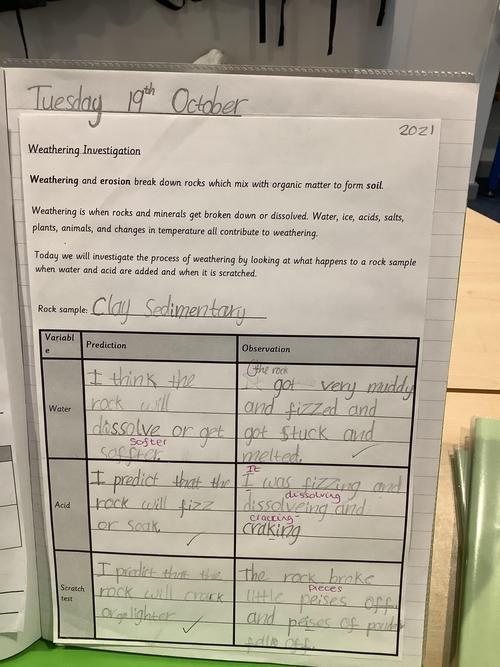 Tuesday 19th October
2021
Weathering Investigation
Weathering and erosion break down rocks which mix with organic matter to form soil.
Weathering is when rocks and minerals get broken down or dissolved. Water, ice, acids, salts,
plants, animals, and changes in temperature all contribute to weathering.
Today we will investigate the process of weathering by looking at what happens to a rock sample
when water and acid are added and when it is scratched.
Rock sample: Clay Sedimentary
Variabl
e
Prediction
Observation
Water
I think the
rock will
dissolve or get
softer
soffter.
the rock
got very muddy
and fizzed and
got stuck and
melted.
Acid
I predict that the
rock will fizz
or soak.
It
I was fizzing and
dissolving
dissolveing and
cracking
craking
Scratch
test
I predict that the
rock will crack
or lighter
The rock broke
pieces
little peises off.
and peises of
falls off.